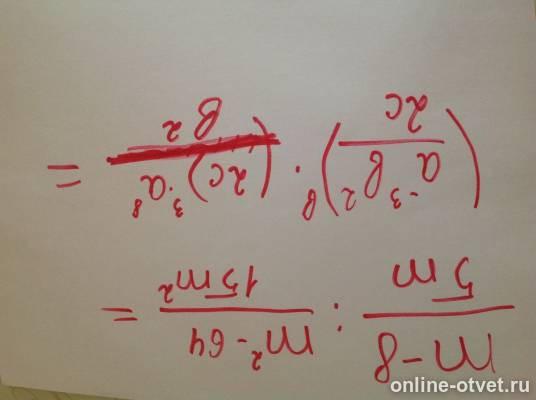 m-8 / 5m : m²-64 / 15m² =
(a⁻³в² / 2c)⁸ · ((2c)³·a⁸ / в²) =
online-otvet.ru